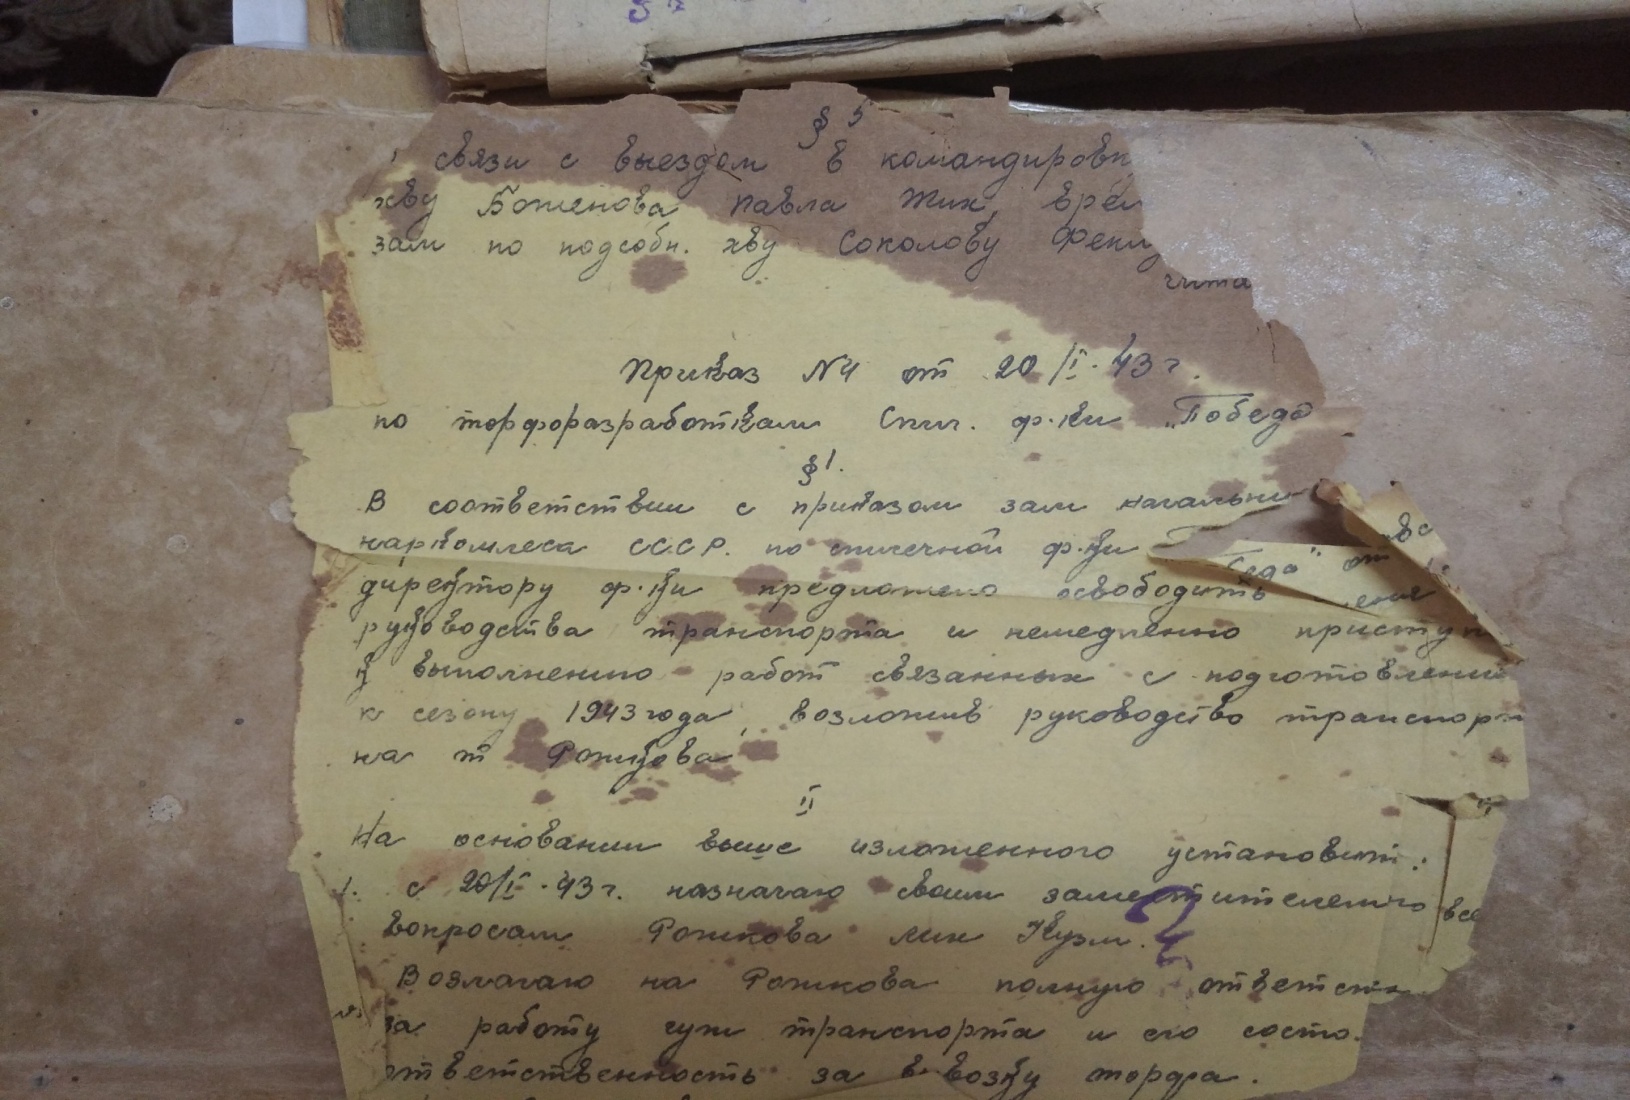 § 5
связи с выездом в командировк
хву Боженова Павла Тих, врем
зам по подсобн. хву Соколову Фекл
чита
Приказ №4 от 20/I-43 г.
по торфоразработкам Спич. ф-ки „Победа
§ 1.
В соответствии с приказом зам начальни
наркомлеса СССР. по спичечной ф-ки беда" от
директору ф-ки предложено освободить
руководства транспорта и немедленно приступи
к выполнению работ связанных с подготовлений
к сезону 1943 года, возложив руководство транспорт
на т Рожкова
II
На основании выше изложенного установить:
1. с 20/I-43 г. назначаю своим заместителем по все
вопросам Рожкова Мих Кузм.
Возлагаю на Рожкова полную ответств
за работу гуж транспорта и его состо.
ответственность за вывозку торфа.